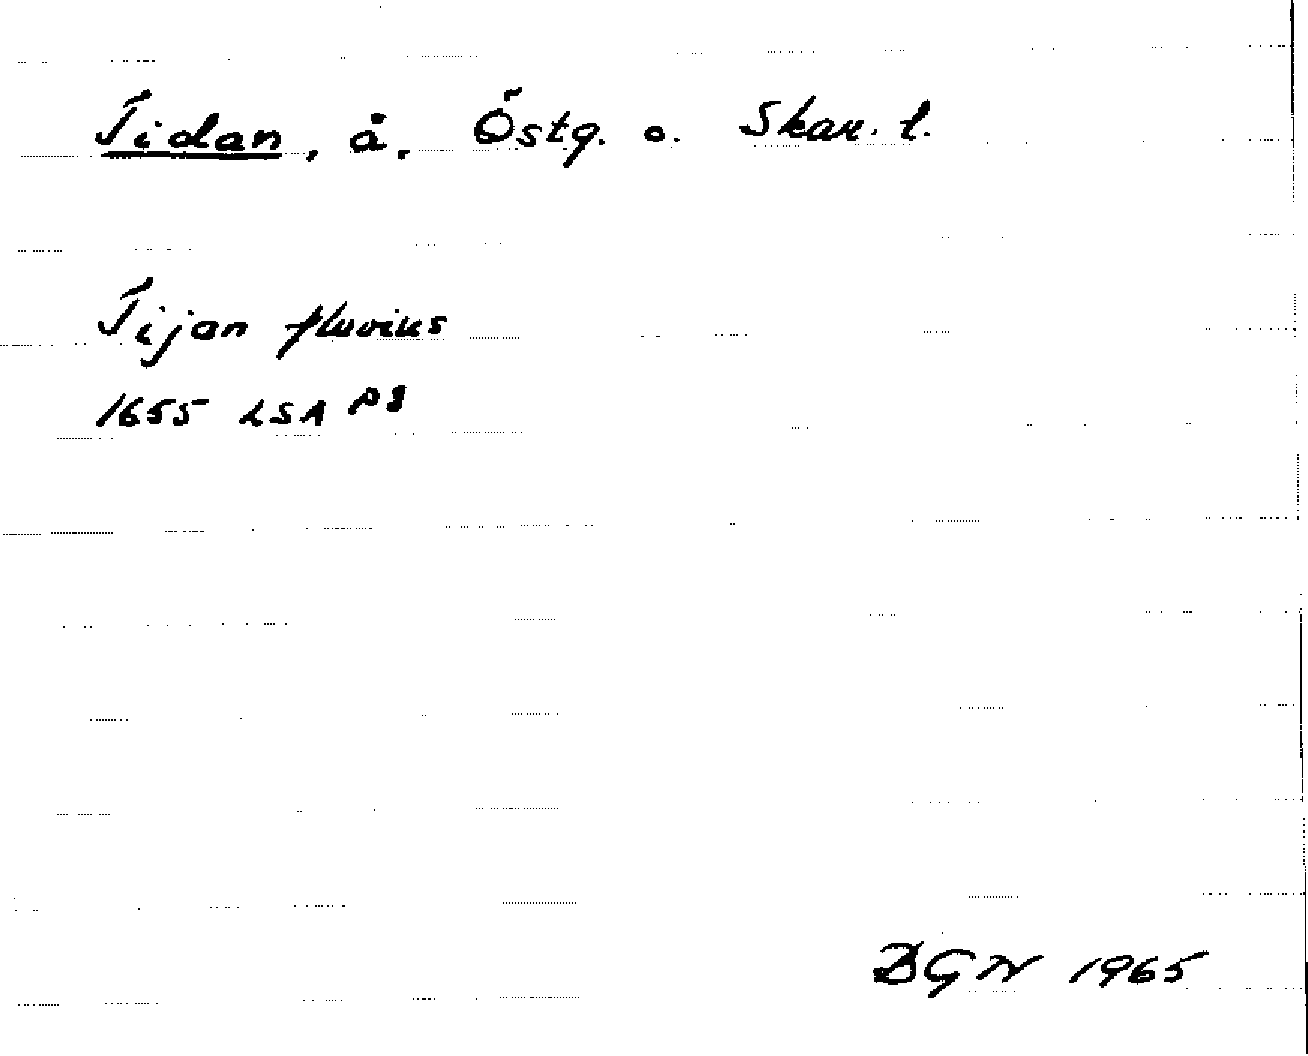 Tidan, å, Östg. o. Skar. l.
Tijan fluvius
1655 LSA P8
BGN 1965